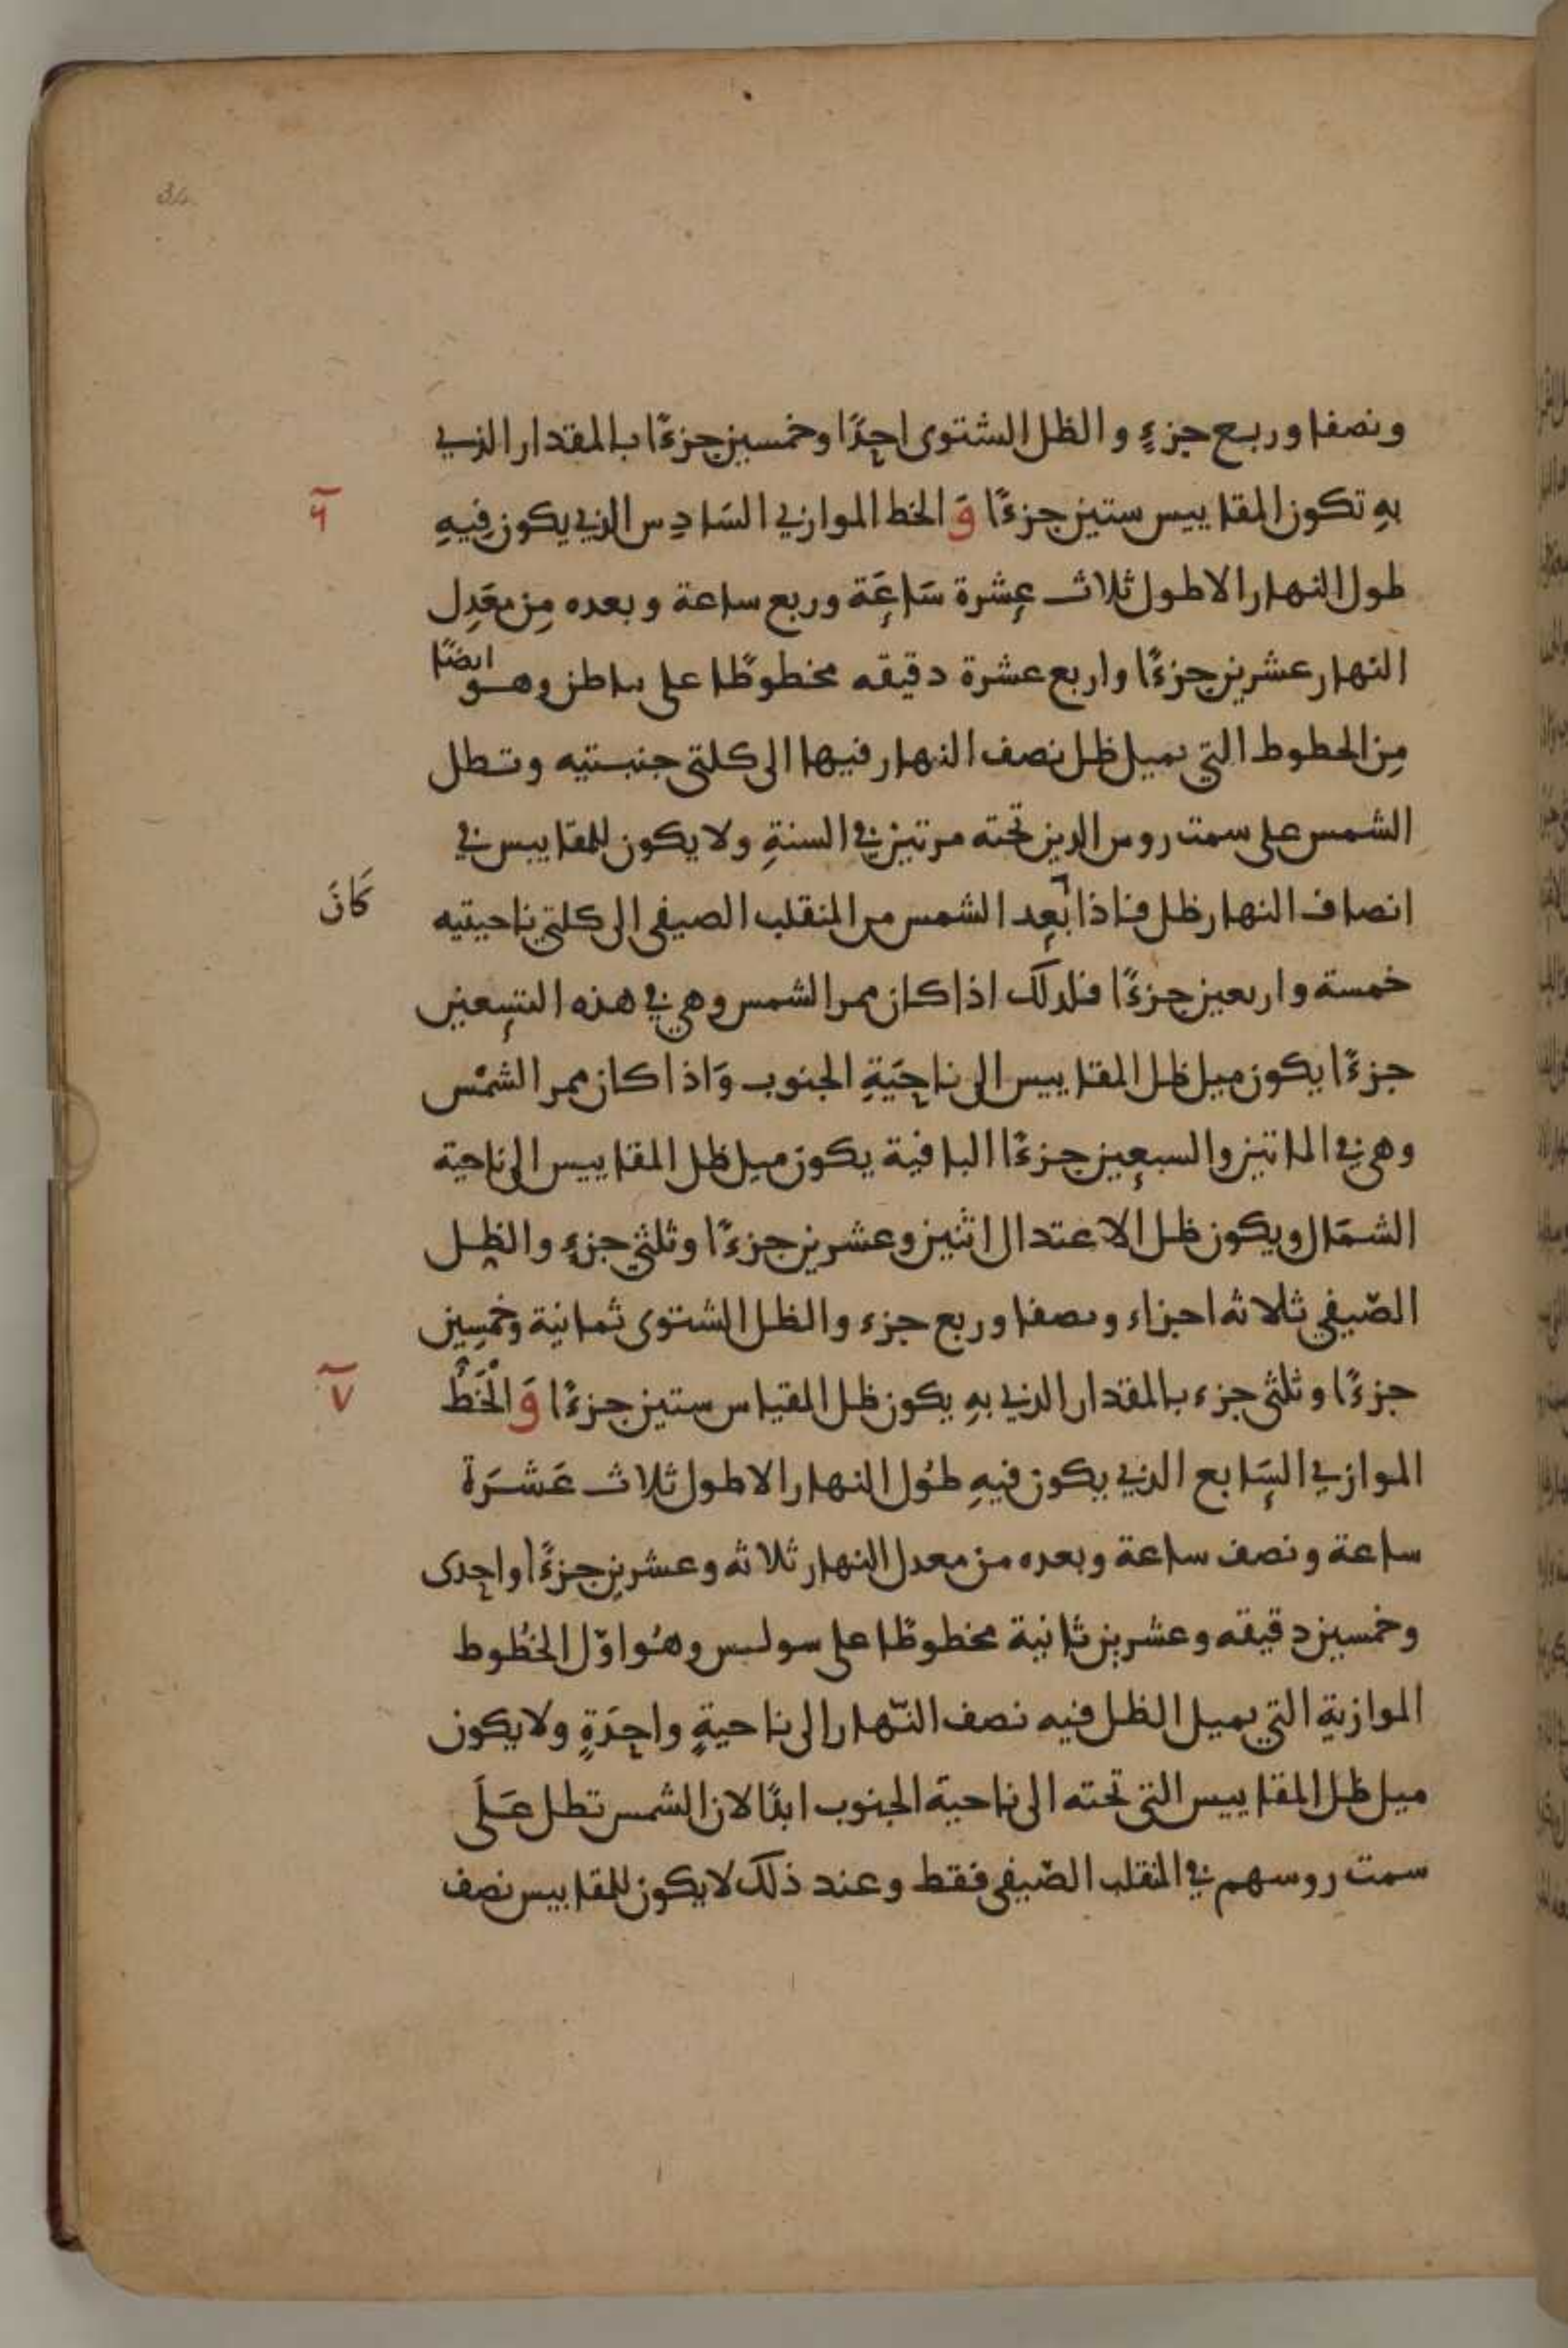 34
ونصفا وربع جزءٍ والظل الشتوى احدًا وخمسين جزءًا بالمقدار الذي
بهِ تكون المقاييس ستين جزءًا وَ الخط الموازي السَادِس الذي يكون فِيهِ
٦
طول النهار الاطول ثلاث عشرة سَاعَة وربع ساعة وبعده مِن معَدِل
النهار عشرين جزءًا واربع عشرة دقيقه مخطوطًا على ىاطن وهو ايضًا
مِن الخطوط التي يميل ظل نصف النهار فيها الى كلتى جنبتيه وتطل
الشمس على سمت روس الذين تحته مرتين في السنةِ ولا يكون للمقاييس في
انصاف النهار ظل فاذا بعد الشمس من المنقلب الصيفى الى كلتي ناحيتيه
كَانَ
خمسة واربعين جزءًا فلذلك اذا كان ممر الشمس وهي في هذه التسعين
جزءًا يكون ميل ظل المقاييس الى ناحَيَةِ الجنوب وَاذا كان ممر الشمْس
وهي في الماتين والسبعين جزءًا الباقية يكون ميل ظل المقاييس الى ناحية
الشمَال ويكون ظل الاعتدال اثنين وعشرين جزءًا وثلثي جزءٍ والظل
الصّيفي ثلاثه اجزاء ونصفا وربع جزء والظل الشتوى ثمانية وخمسِين
جزءًا وثلثى جزء بالمقدار الذي بهِ يكون ظل المقياس ستين جزءًا وَ الْخَطُ
٧
الموازي السَابع الذي يكون فيهِ طوُل النهار الاطول ثلاث عَشرَة
ساعة ونصف ساعة وبعده من معدل النهار ثلاثه وعشرين جزءًا واحدى
وخمسين دقيقه وعشرين ثانية مخطوطًا على سولىس وهوُ اوّل الخطُوط
الموازية التي يميل الظل فيه نصف النّهار الى ناحيةٍ واحِدَةٍ ولا يكون
ميل ظل المقاييس التي تحته الى ناحية الجنوب ابدًا لان الشمس تطل عَلَى
سمت روسهم في المنقلب الصّيفى فقط وعند ذلك لا يكون للمقاييس نصف